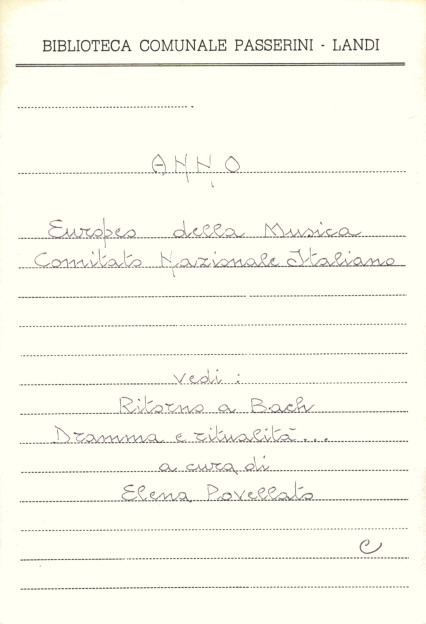 BIBLIOTECA COMUNALE PASSERINI - LANDI
ANNO
Europeo della Musica
Comitato Nazionale Italiano
vedi :
Ritorno a Bach
Dramma e ritualità...
a cura di
Elena Povellato
C